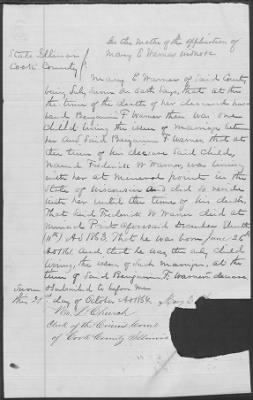 In the matter of the application of
Mary E Warner widow
State Illinois
Cook County
Mary E Warner of Said County,
being duly sworn on oath says, that at
the time of the death of her deceased
band Benjamin F Warner there was one
child living the issue of marriage between
her and Said Benjamin F Warner, that at
the time of his decease Said Child,
Named Frederick W Warner, was living
with her at Mineral point in the
State of Wisconsin and did so reside
with her until the time of his death,
That Said Frederick W Warner died at
Mineral Point aforesaid December Eleventh
(11th) AD 1863. That he was born June 26th
AD 1861 and that he was the only Child
living, the issue of Said marriage, at the
time of Said Benjamin F Warner's decease
Sworn & Subscribed to before me
this 21st day of October AD 1864. Mary E
Wm L Church
Clerk of the Circuit Court
of Cook County Illinois